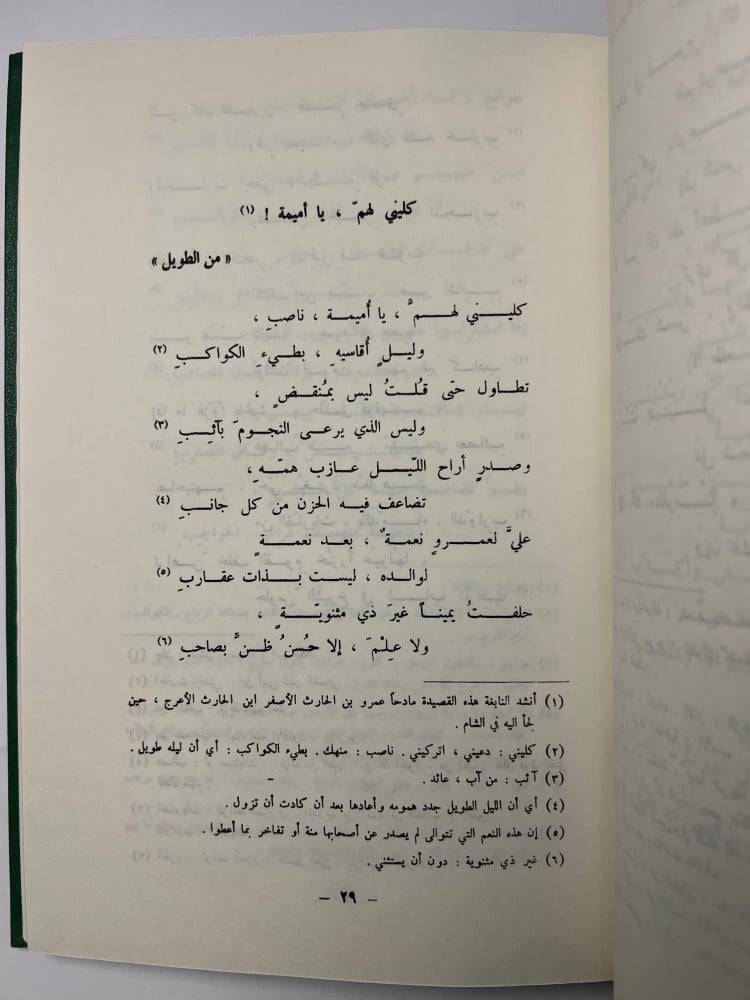 كليني لهمّ ، يا أميمة ! (١)
« من الطويل »
كليــني لهــمٍّ ، يا أُميمــة ، ناصبِ ،
وليــلٍ أُقاسيهِ ، بطيءِ الكواكــبِ (٢)
تطاول حتّى قلتُ ليس بمُنقضٍ ،
وليس الذي يرعى النجومَ بآئِبِ (٣)
وصدرٍ أراح اللّيــل عازب همّهِ ،
تضاعف فيه الحزن من كل جانبِ (٤)
عليَّ لعمروٍ نعمةٌ ، بعد نعمةٍ
لوالده ، ليست بذات عقاربِ (٥)
حلفتُ يميناً غيرَ ذي مثنويّةٍ ،
ولا عِلمَ ، إلا حُسنُ ظنٍّ بصاحبِ (٦)
(١) أنشد النابغة هذه القصيدة مادحاً عمرو بن الحارث الأصفر ابن الحارث الأعرج ، حين
لجأ اليه في الشام .
(٢) كليني : دعيني ، اتركيني . ناصب : منهك . بطيء الكواكب : أي أن ليله طويل .
(٣) آئب : من آب ، عائد .
(٤) أي أن الليل الطويل جدد همومه وأعادها بعد أن كادت أن تزول .
(٥) إن هذه النعم التي تتوالى لم يصدر عن أصحابها منة أو تفاخر بما أعطوا .
(٦) غير ذي مثنوية : دون أن يستثني .
– ٢٩ –